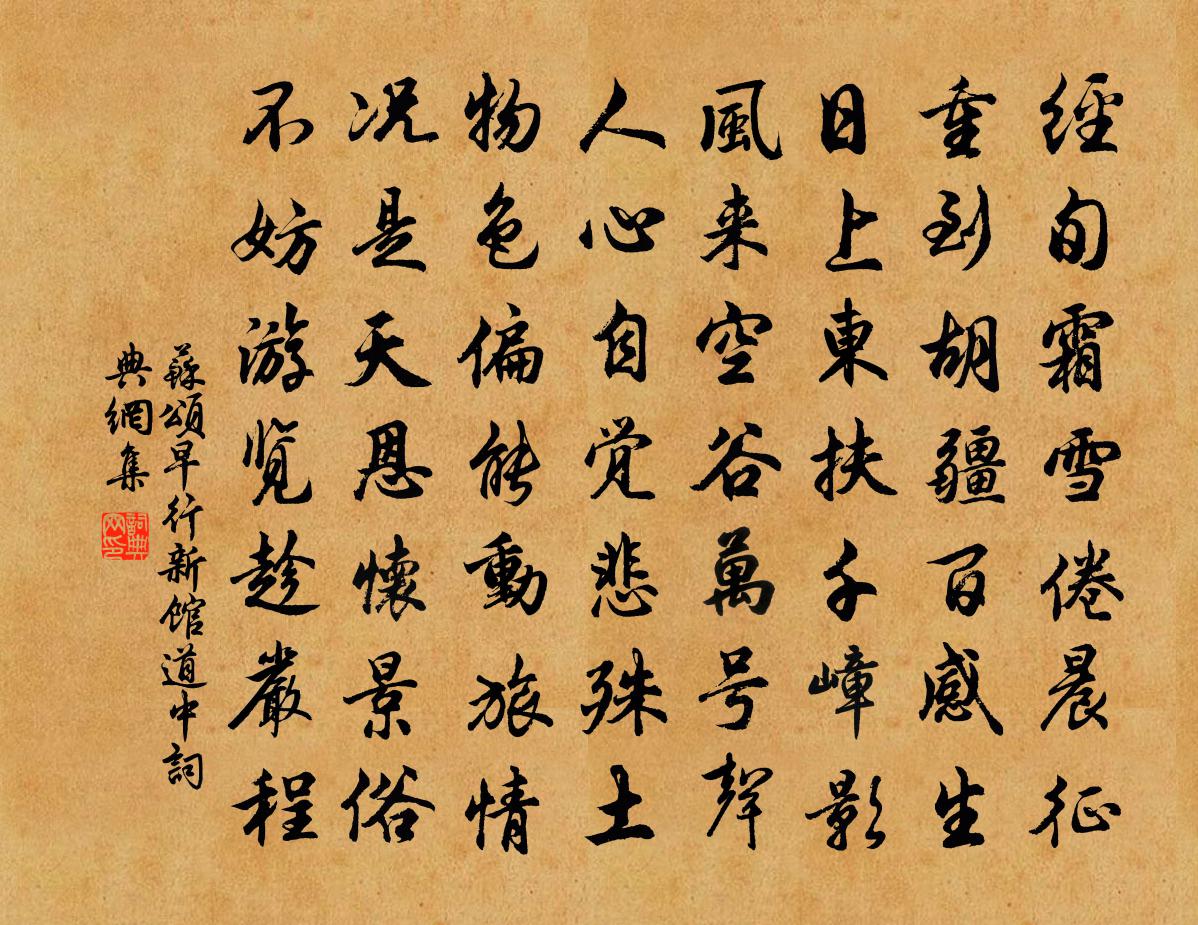 經旬霜雪倦晨征
重到胡疆百感生
日上東扶千嶂影
風来空谷萬号聲
人心自觉悲殊土
物色偏能動旅情
况是天恩懷景俗
不妨游览趁嚴程
蘇頌早行新館道中詞
典網集
詞典
网印